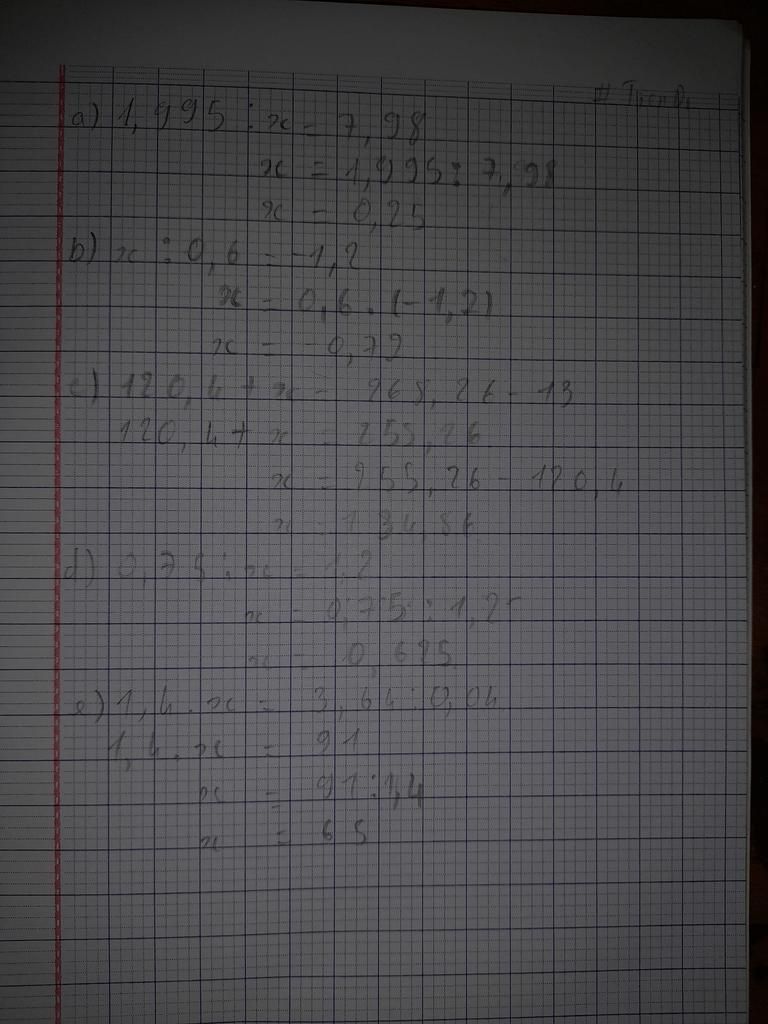 a) 1,995 : x = 7,98
x = 1,995 : 7,98
x = 0,25
b) x : 0,6 = -1,2
x = 0,6 . (-1,2)
x = -0,72
c) 120,4 + x = 268,26 - 13
120,4 + x = 255,26
x = 255,26 - 120,4
x = 134,86
d) 0,75 : x = 1,2
x = 0,75 : 1,2
x = 0,625
e) 1,4 . x = 3,64 : 0,04
1,4 . x = 91
x = 91 : 1,4
x = 65